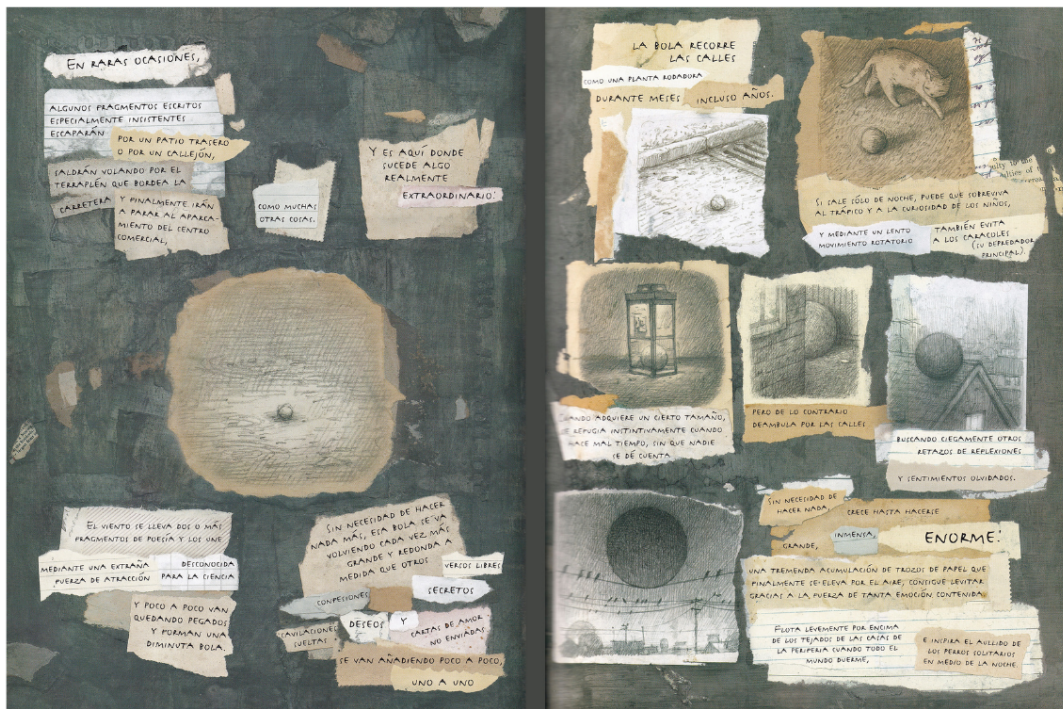 EN RARAS OCASIONES,
ALGUNOS FRAGMENTOS ESCRITOS
ESPECIALMENTE INSISTENTES
ESCAPARÁN
POR UN PATIO TRASERO
O POR UN CALLEJÓN,
SALDRÁN VOLANDO POR EL
TERRAPLÉN QUE BORDEA LA
CARRETERA
Y FINALMENTE IRÁN
A PARAR AL APARCA-
MIENTO DEL CENTRO
COMERCIAL,
COMO MUCHAS
OTRAS COSAS.
Y ES AQUÍ DONDE
SUCEDE ALGO
REALMENTE
EXTRAORDINARIO:
EL VIENTO SE LLEVA DOS O MÁS
FRAGMENTOS DE POESÍA Y LOS UNE
MEDIANTE UNA EXTRAÑA
FUERZA DE ATRACCIÓN
DESCONOCIDA
PARA LA CIENCIA
Y POCO A POCO VAN
QUEDANDO PEGADOS
Y FORMAN UNA
DIMINUTA BOLA.
SIN NECESIDAD DE HACER
NADA MÁS, ESA BOLA SE VA
VOLVIENDO CADA VEZ MÁS
GRANDE Y REDONDA A
MEDIDA QUE OTROS
VERSOS LIBRES
CONFESIONES
SECRETOS
CAVILACIONES
SUELTAS
DESEOS Y
CARTAS DE AMOR
NO ENVIADAS
SE VAN AÑADIENDO POCO A POCO,
UNO A UNO
LA BOLA RECORRE
LAS CALLES
COMO UNA PLANTA RODADORA
DURANTE MESES INCLUSO AÑOS.
SI SALE SÓLO DE NOCHE, PUEDE QUE SOBREVIVA
AL TRÁFICO Y A LA CURIOSIDAD DE LOS NIÑOS,
Y MEDIANTE UN LENTO
MOVIMIENTO ROTATORIO
TAMBIÉN EVITA
A LOS CARACOLES
(SU DEPREDADOR
PRINCIPAL).
CUANDO ADQUIERE UN CIERTO TAMAÑO,
SE REFUGIA INSTINTIVAMENTE CUANDO
HACE MAL TIEMPO, SIN QUE NADIE
SE DÉ CUENTA
PERO DE LO CONTRARIO
DEAMBULA POR LAS CALLES
BUSCANDO CIEGAMENTE OTROS
RETAZOS DE REFLEXIONES
Y SENTIMIENTOS OLVIDADOS.
SIN NECESIDAD DE
HACER NADA,
CRECE HASTA HACERSE
GRANDE,
INMENSA,
ENORME:
UNA TREMENDA ACUMULACIÓN DE TROZOS DE PAPEL QUE
FINALMENTE SE ELEVA POR EL AIRE; CONSIGUE LEVITAR
GRACIAS A LA FUERZA DE TANTA EMOCIÓN CONTENIDA.
FLOTA LEVEMENTE POR ENCIMA
DE LOS TEJADOS DE LAS CASAS DE
LA PERIFERIA CUANDO TODO EL
MUNDO DUERME,
E INSPIRA EL AULLIDO DE
LOS PERROS SOLITARIOS
EN MEDIO DE LA NOCHE.